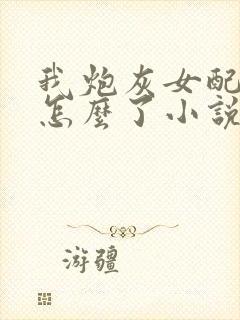 我炮灰女配
怎麼了小說
游疆